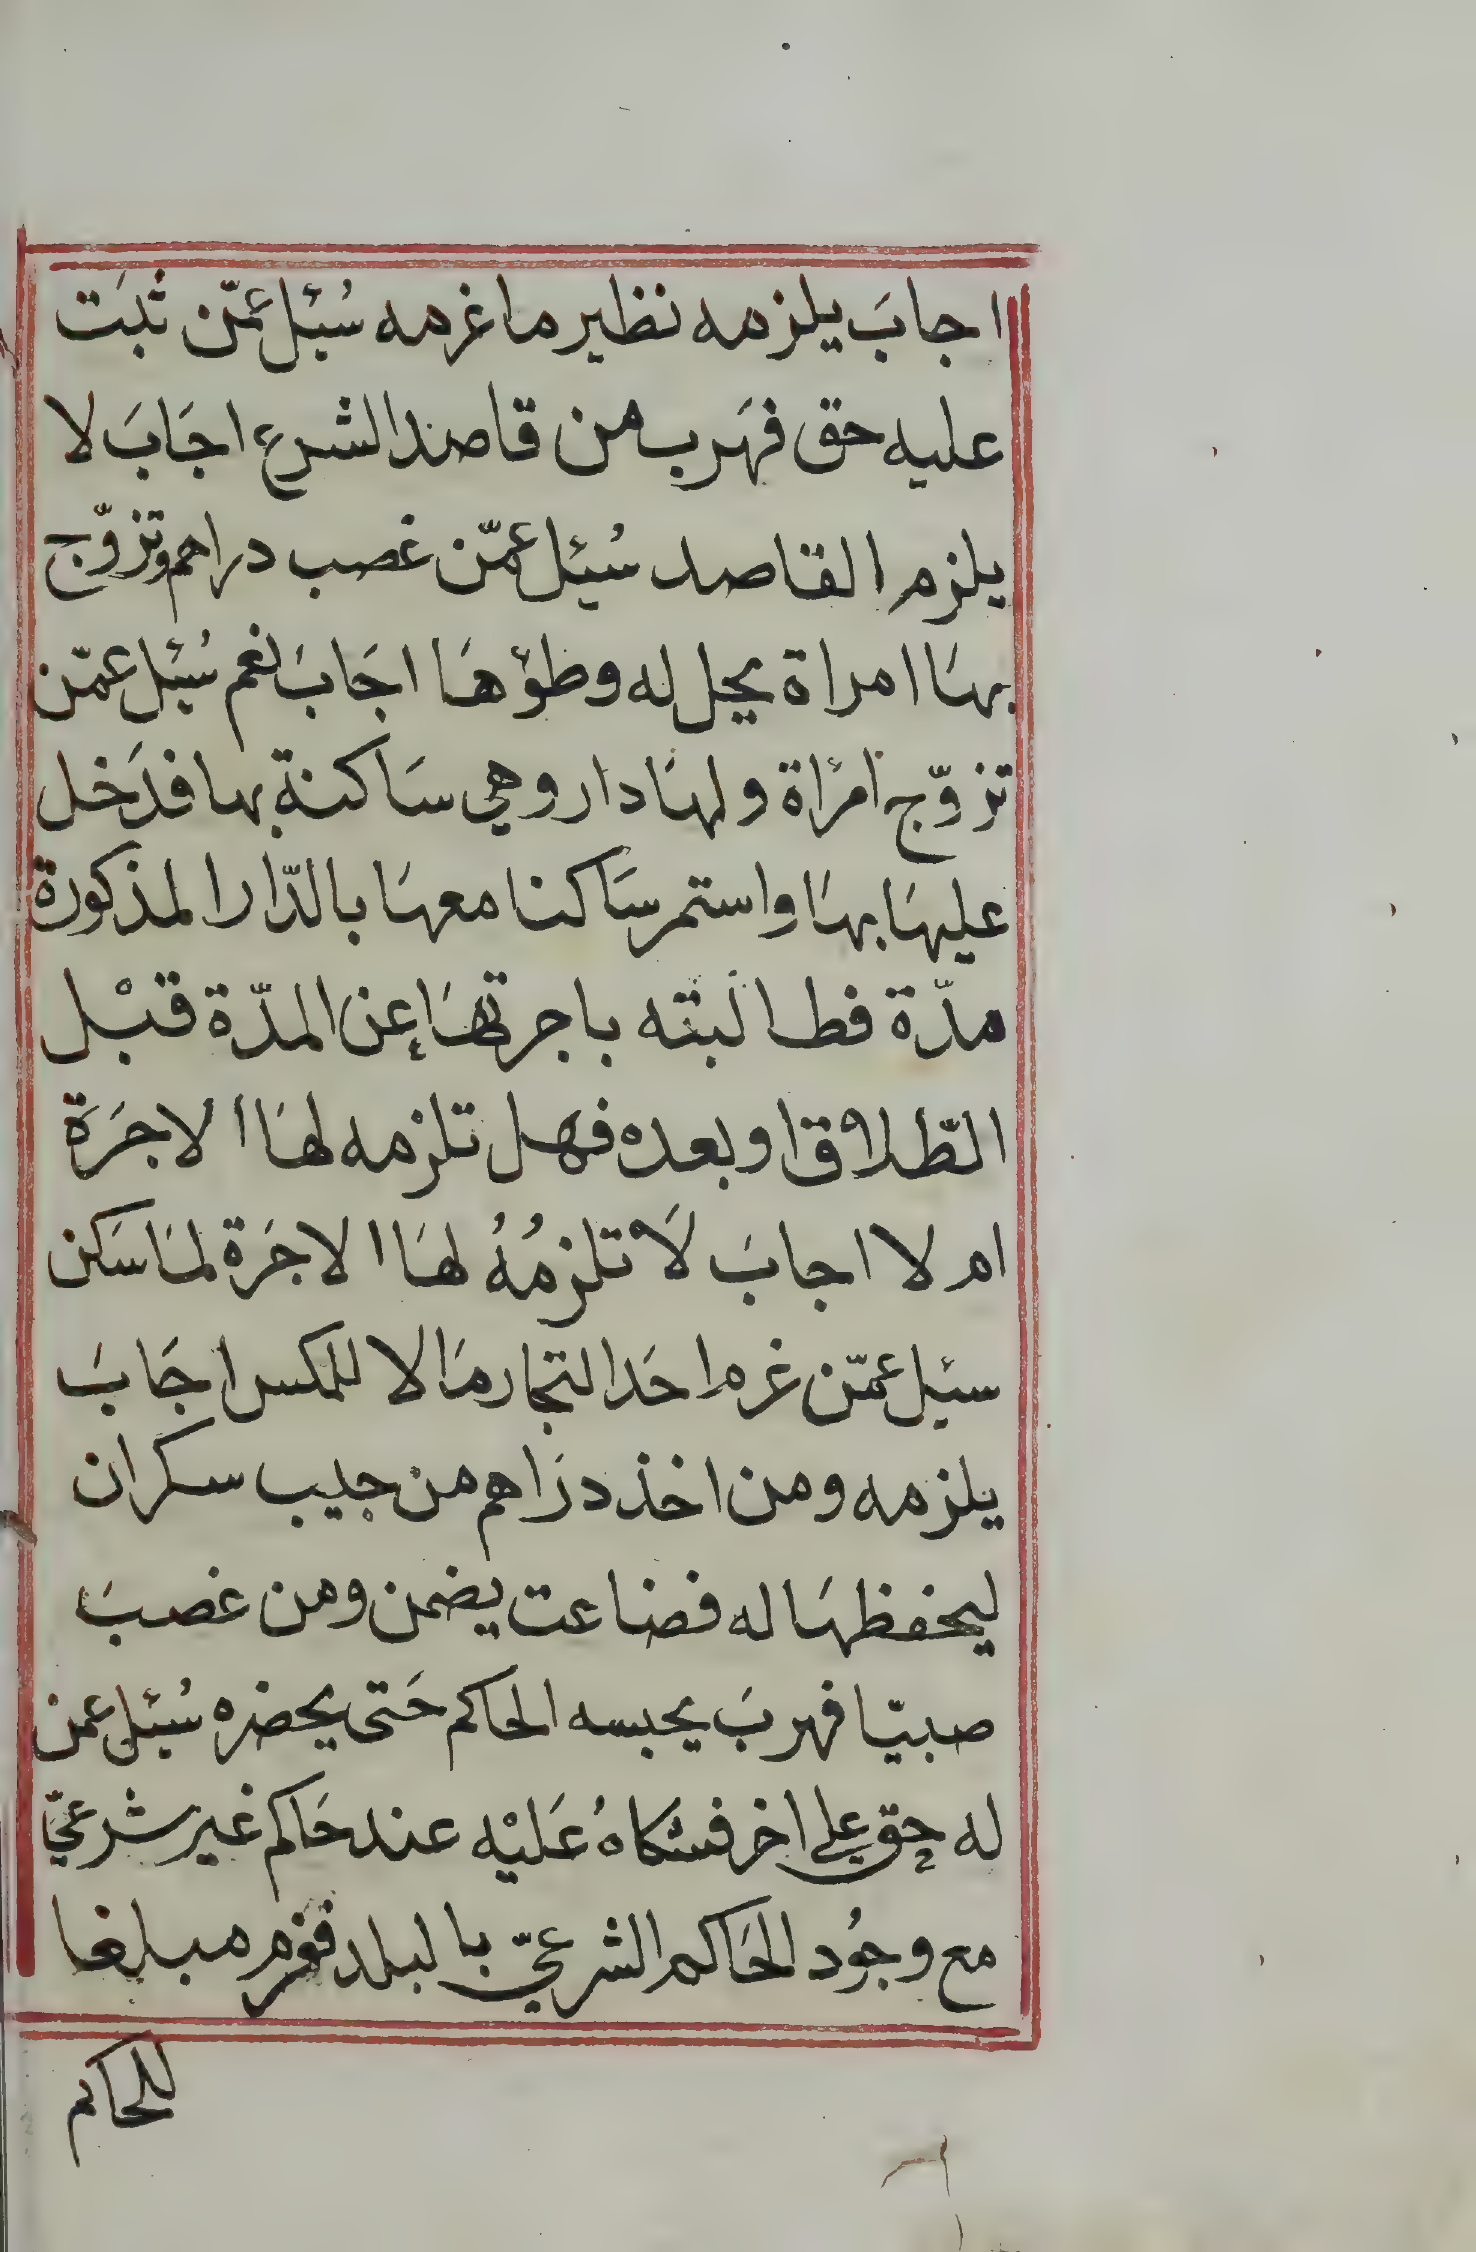 اجابَ يلزمه نظير ما غرمه سُئِل عمّن ثبَت
عليه حق فهَرب من قاصد الشرع اجَابَ لا
يلزم القاصد سُئِل عمّن غصب دراهم وتزوّج
بهَا امراة يحل له وطؤهَا اجَابَ نعم سُئِل عمّن
تزوّج امرَأة ولهَا دار وهي سَاكنة بها فدَخل
عليهَا بهَا واستمر سَاكنا معهَا بالدّار المذكورة
مدّة فطالبته باجرتهَا عن المدّة قبْل
الطّلاق او بعده فهل تلزمه لهَا الاجرَة
ام لا اجابَ لَا تلزمُهُ لهَا الاجرَة لمَا سَكن
سئل عمّن غرم احَد التجار مَالا للمكس اجَابَ
يلزمه ومن اخذ درَاهم من جيب سكران
ليحفظهَا له فضاعت يضمن ومن غصبَ
صبيّا فهربَ يحبسه الحاكم حَتى يحضره سُئِل عمن
له حق على اخر فشكاهُ عَليْه عند حَاكم غير شرعيّ
مع وجُود الحَاكم الشرعيّ بالبلد فغرم مبلغا
للحاكم